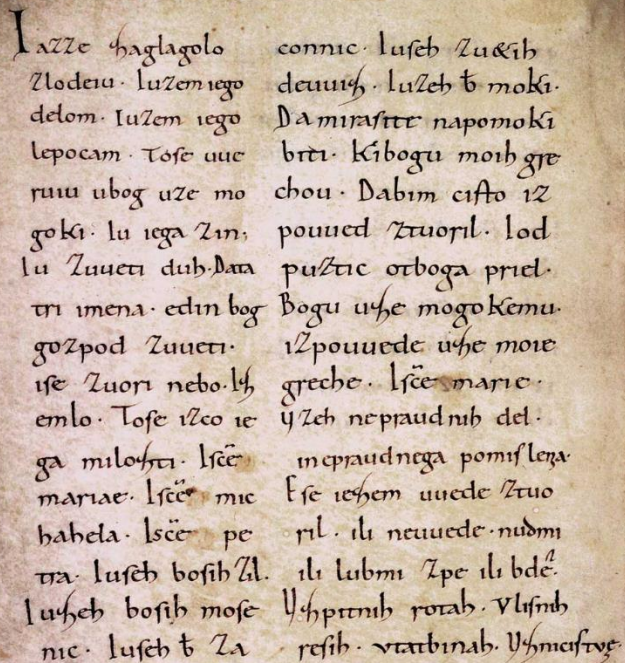 Iazze zaglagolo
zlodeiu. Iuzem iego
delom. Iuzem iego
lepocam. Tose uue
ruiu ubog uze mo
goki. Iu iega zin;
Iu zuueti duh. Data
tri imena. edin bog
gozpod zuueti.
ise zuori nebo. Iz
emlo. Tose izco ie
ga milozti. Isce
mariae. Isce mic
hahela. Isce pe
tra. Iuseh bosih zil.
Iuzeh bosih mose
nic. Iuseh b za
connic. Iuseh zu&ih
deuuiz. Iuzeh b moki.
Da mi rasite na pomoki
biti. Kibogu moih gre
chou. Dabim cisto iz
pouued ztuoril. Iod
puztic otboga priel.
Bogu uze mogokemu.
izpouuede uze moie
greche. Isce marie.
uzeh nepraudnih del.
inepraudnega pomislena.
Ese iezem uuede ztuo
ril. ili neuuede. nudmi
ili lubmi zpe ili bde.
Uzpitnih rotah. Vlisnih
resih. vtatbinah. Uzmcistue.